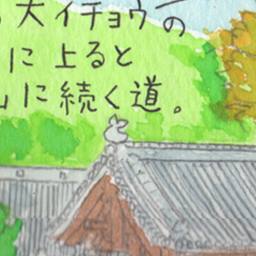 大イチョウの
に上ると
に続く道。